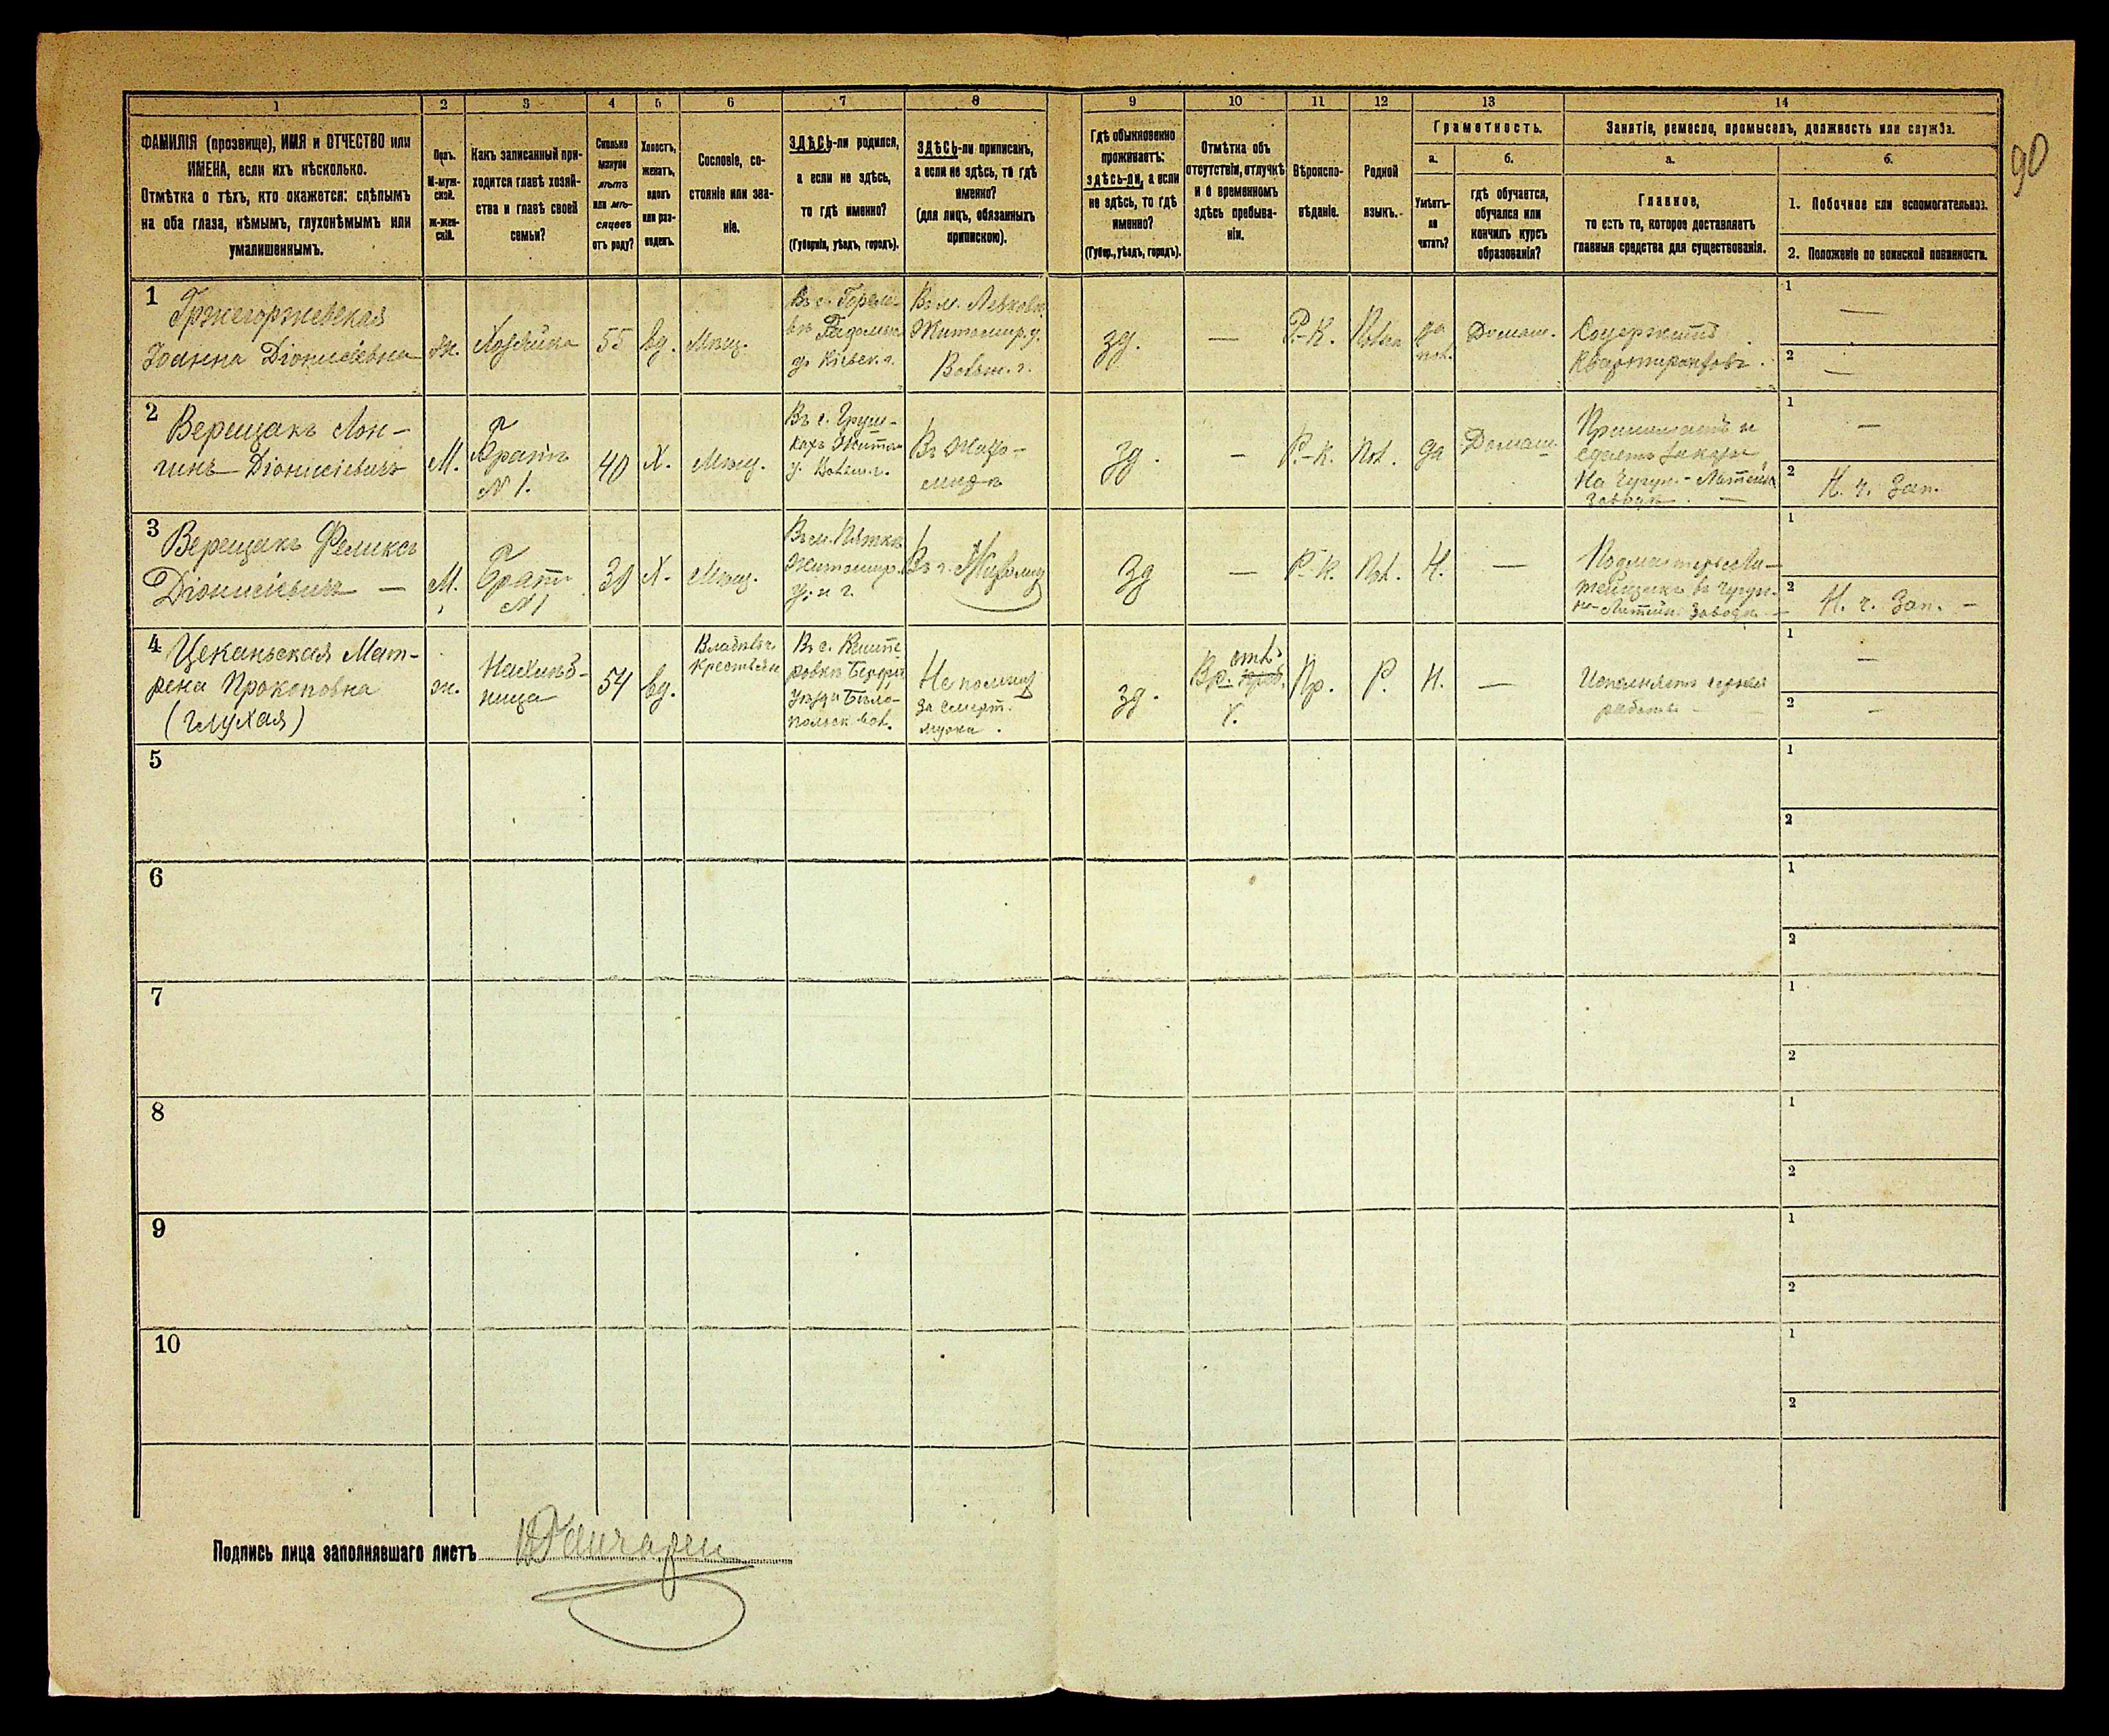 1 2 3 4 5 6 7 8 9 10 11 12 13 14
ФАМИЛІЯ (прозвище), ИМЯ и ОТЧЕСТВО или
ИМЕНА, если ихъ нѣсколько.
Отмѣтка о тѣхъ, кто окажется: слѣпымъ
на оба глаза, нѣмымъ, глухонѣмымъ или
умалишеннымъ.
Полъ.
М-муж-
ской.
ж-жен-
скій.
Какъ записанный при-
ходится главѣ хозяй-
ства и главѣ своей
семьи?
Сколько
минуло
лѣтъ
или мѣ-
сяцевъ
отъ роду?
Холостъ,
женатъ,
вдовъ
или раз-
веденъ.
Сословіе, со-
стояніе или зва-
ніе.
ЗДѢСЬ-ли родился,
а если не здѣсь,
то гдѣ именно?
(Губернія, уѣздъ, городъ).
ЗДѢСЬ-ли приписанъ,
а если не здѣсь, то гдѣ
именно?
(для лицъ, обязанныхъ
припискою).
Гдѣ обыкновенно
проживаетъ:
здѣсь-ли, а если
не здѣсь, то гдѣ
именно?
(Губер., уѣздъ, городъ).
Отмѣтка объ
отсутствіи, отлучкѣ
и о временномъ
здѣсь пребыва-
ніи.
Вѣроиспо-
вѣданіе.
Родной
языкъ.
Грамотность.
а.
Умѣетъ-
ли
читать?
б.
гдѣ обучается,
обучался или
кончилъ курсъ
образованія?
Занятіе, ремесло, промыселъ, должность или служба.
а.
Главное,
то есть то, которое доставляетъ
главныя средства для существованія.
б.
1. Побочное или вспомогательное.
2. Положеніе по воинской повинности.
90
1
Гржегоржевская
Іоанна Діонисіевна
ж.
Хозяйка
55
вд.
Мѣщ.
Кіевск. г.
Житомир. у.
Волын. г.
зд.
—
Р.-К.
да
Домаш.
Содержитъ
Квартирантовъ.
1
—
2
—
2
Верещакъ Лон-
гинъ Діонисіевичъ
М.
Братъ
N 1.
40
Х.
Мѣщ.
Въ с. Груш-
кахъ Житом.
у. Волын. г.
Въ Жито-
мирѣ
зд.
-
Р.-К.
Пол.
да
Домаш
Принимаетъ и
сдаетъ заказы
На Чугун.-Литейн.
Заводѣ. —
1
—
2
Н. ч. Зап.
3
Верещакъ Феликсъ
Діонисіевичъ —
М.
Братъ
N 1
Х.
Мѣщ.
Въ м. Пятка
Житомир.
у. и г.
зд
—
Р.-К.
Пол.
Н.
—
Подмастерье Ли-
тейщика въ Чугун-
но-Литейн. Заводѣ —
1
2
Н. ч. Зап. -
4
Цеканьская Мат-
рена Прокоповна
(глухая)
ж.
54
вд.
Владѣльч.
Крестьян
Не помнитъ
за смерт.
мужа.
зд.
Пр.
Р.
Н.
—
Исполняетъ
работы -
1
—
2
-
5
1
2
6
1
2
7
1
2
8
1
2
9
1
2
10
1
2
Подпись лица заполнявшаго листъ